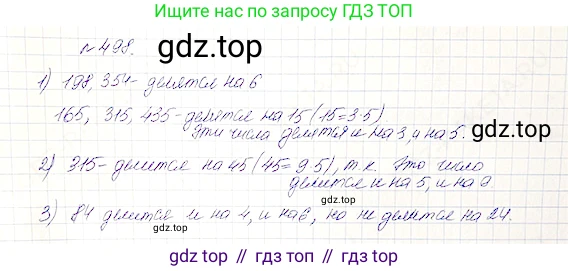 Ищите нас по запросу ГДЗ ТОП
№498.
gdz.top
1) 198, 354 - делятся на 6
165, 315, 435 - делятся на 15 (15=3·5)
Эти числа делятся и на 3, и на 5.
gdz.top
2) 315 - делится на 45 (45=9·5), т.к. это число
делится и на 5, и на 9.
3) 84 делится и на 4, и на 6, но не делится на 24.
gdz.top
gdz.top // гдз топ // гдз.топ